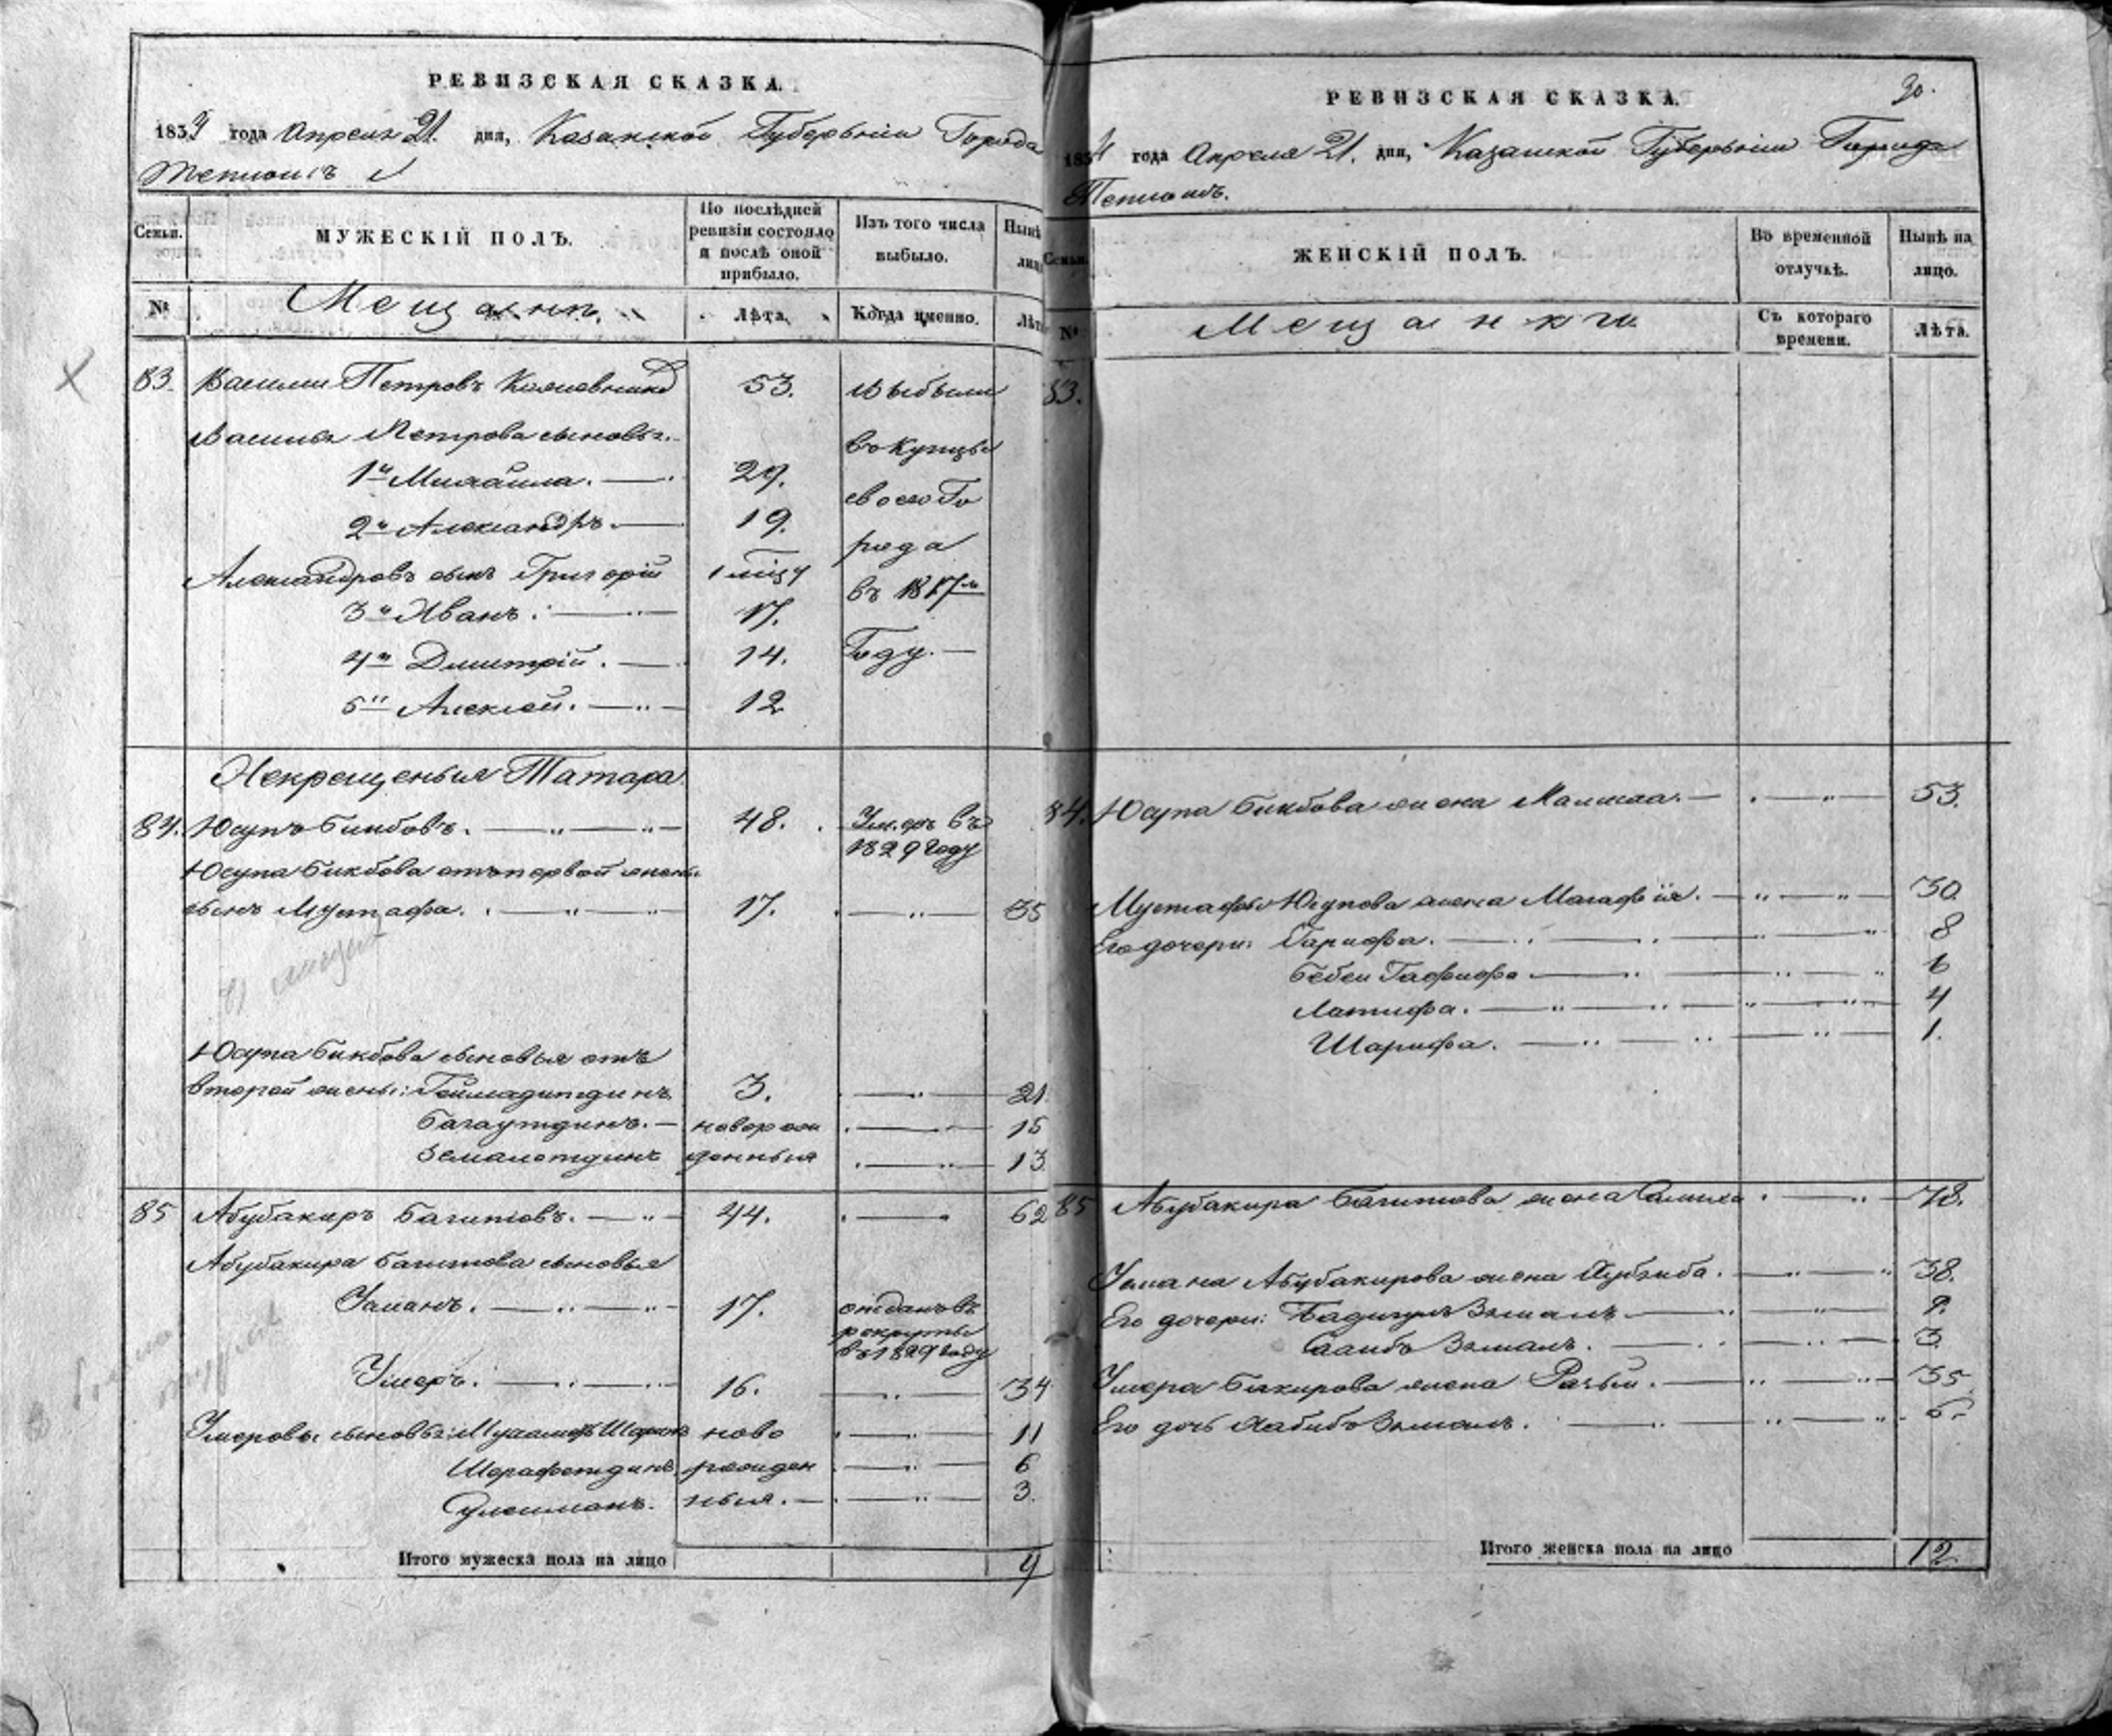 РЕВИЗСКАЯ СКАЗКА.
1834 года Апреля 21. дня, Казанской Губерніи Города
Тетюшъ
Семьи.
МУЖЕСКІЙ ПОЛЪ.
По послѣдней ревизіи состояло и послѣ оной прибыло.
Изъ того числа выбыло.
Нынѣ
№
Мещане
Лѣта.
Когда именно.
Лѣт
83. Василий Петровъ 53. Выбыли
Василья Петрова сыновья. в Купцы
1й Михайла. 29. своего Го
2й Александръ. 19. рода
Александровъ сынъ Григорій 1 въ 1817м
3й Иванъ. 17. Году.
4й Дмитрій. 14.
5й Алексей. 12
Некрещеныя Татара
84. Юсупъ Бикбовъ. 48. Умеръ въ
1829 году
Юсупа Бикбова отъ первой жены
сынъ Мустафа. 17. 35
Юсупа Бикбова сыновья отъ
второй жены: 3. 21
Багаутдинъ. новорож 15
денныя 13
85 Абубакиръ Багишовъ. 44. 62
Абубакира Багишова сыновья
Усманъ. 17. отданъ въ
рекруты
въ 1829 году
Умеръ. 16. 34
Умеровы сыновья: ново 11
Шерафетдинъ рожден 6
Сулейманъ. ныя. 3.
Итого мужеска пола на лицо 9
РЕВИЗСКАЯ СКАЗКА.
30.
1834 года Апреля 21. дня, Казанской Губерніи Города
Тетюшъ.
Семьи.
ЖЕНСКІЙ ПОЛЪ.
Во временной отлучкѣ.
Нынѣ на лицо.
№
Мещанки
Съ котораго времени.
Лѣта.
83.
84. Юсупа Бикбова жена 53.
Мустафы Юсупова жена 30.
Его дочери: Гарифа. 8
Бебеи Гафифа 6
Латифа. 4
Шарифа. 1.
85 Абубакира Багишова жена 48.
Усмана Абубакирова жена 38.
Его дочери: 9.
3
Умера Бакирова жена 35
Его дочь 6.
Итого женска пола на лицо 12.